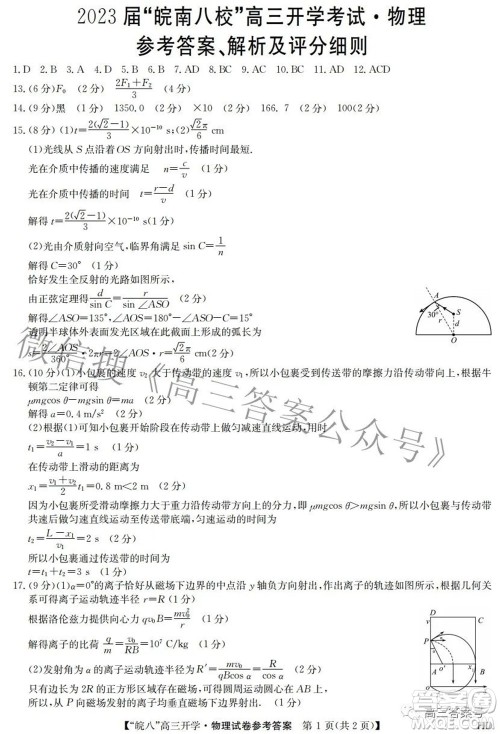 2023届“皖南八校”高三开学考试·物理
参考答案、解析及评分细则
1. D 2. B 3. A 4. D 5. B 6. B 7. AD 8. BC 9. AC 10. BC 11. AD 12. ACD
13. (6分)F₀ (2分) (2F₁+F₂)/3 (4分)
14. (9分)黑 (1分) 1350.0 (2分) ×10 (2分) 166.7 (2分) 100(2分)
15. (8分) (1)t=2(√2-1)/3×10⁻¹⁰ s;(2)√2π/6 cm
(1)光线从S点沿着OS方向射出时,传播时间最短.
光在介质中传播的速度满足 n=c/v (1分)
光在介质中传播的时间 t=(r-d)/v (1分)
解得t=2(√2-1)/3×10⁻¹⁰ s(1分)
(2)光由介质射向空气,临界角满足 sin C=1/n
解得C=30° (1分)
恰好发生全反射的光路如图所示,
由正弦定理得d/sin C=r/sin∠ASO (2分)
解得∠ASO=135°,∠AOS=180°-∠ASO-C=15°
透明半球体外表面发光区域在此截面上形成的弧长为
s=2∠AOS/360°·2πr=2∠AOS·r=√2π/6 cm(2分)
16. (10分) (1)小包裹的速度v₂大于传动带的速度v₁,所以小包裹受到传送带的摩擦力沿传动带向上,根据牛
顿第二定律可得
μmgcos θ-mgsin θ=ma (2分)
解得a=0.4 m/s² (2分)
(2)根据(1)可知小包裹开始阶段在传动带上做匀减速直线运动,用时
t₁=(v₂-v₁)/a=1 s (1分)
在传动带上滑动的距离为
x₁=(v₁+v₂)/2 t₁=0.8 m<2 m (2分)
因为小包裹所受滑动摩擦力大于重力沿传动带方向上的分力,即μmgcos θ>mgsin θ,所以小包裹与传动带
共速后做匀速直线运动至传送带底端,匀速运动的时间为
t₂=(L-x₁)/v₁=2 s (2分)
所以小包裹通过传送带的时间为
t=t₁+t₂=3 s (1分)
17. (9分) (1)α=0°的离子恰好从磁场下边界的中点沿y轴负方向射出,作出离子的轨迹如图所示,根据几何关
系可得离子运动轨迹半径r=R (1分)
根据洛伦兹力提供向心力 qv₀B=mv₀²/r (1分)
解得离子的比荷 q/m=v₀/RB=10⁷ C/kg (1分)
(2)发射角为α的离子运动轨迹半径为R′=mv₀/(qBcos α)=R/cos α (1分)
只有边长为2R的正方形区域存在磁场,根据图示几何关系可知
所以从P向磁场发射的离子均垂直下边界射出磁场. (2分)
A
30°
S
r
d
O
D
C
P
O
A
B
x
微信搜《高三答案公众号》
高三答案号
【“皖八”高三开学·物理试卷参考答案 第1页(共2页)】
HD